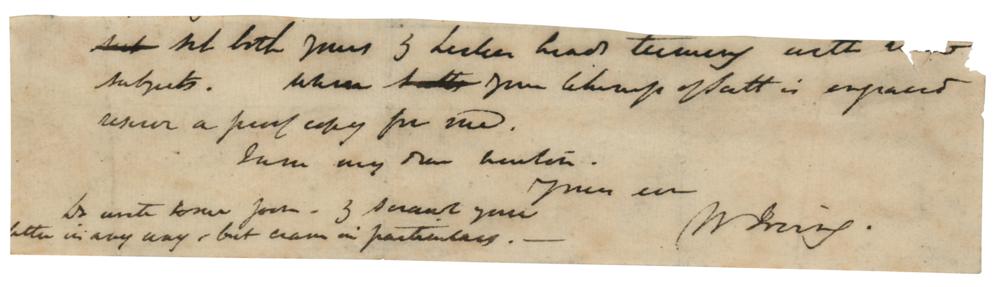 set set both yours & Leslies heads teeming with
subjects. When your likeness of Scott is engraved
reserve a proof copy for me.
I am my dear Newton.
Yours ever
W Irving.
Do write to me soon - & scrawl your
letter in any way - but cram in particulars. —